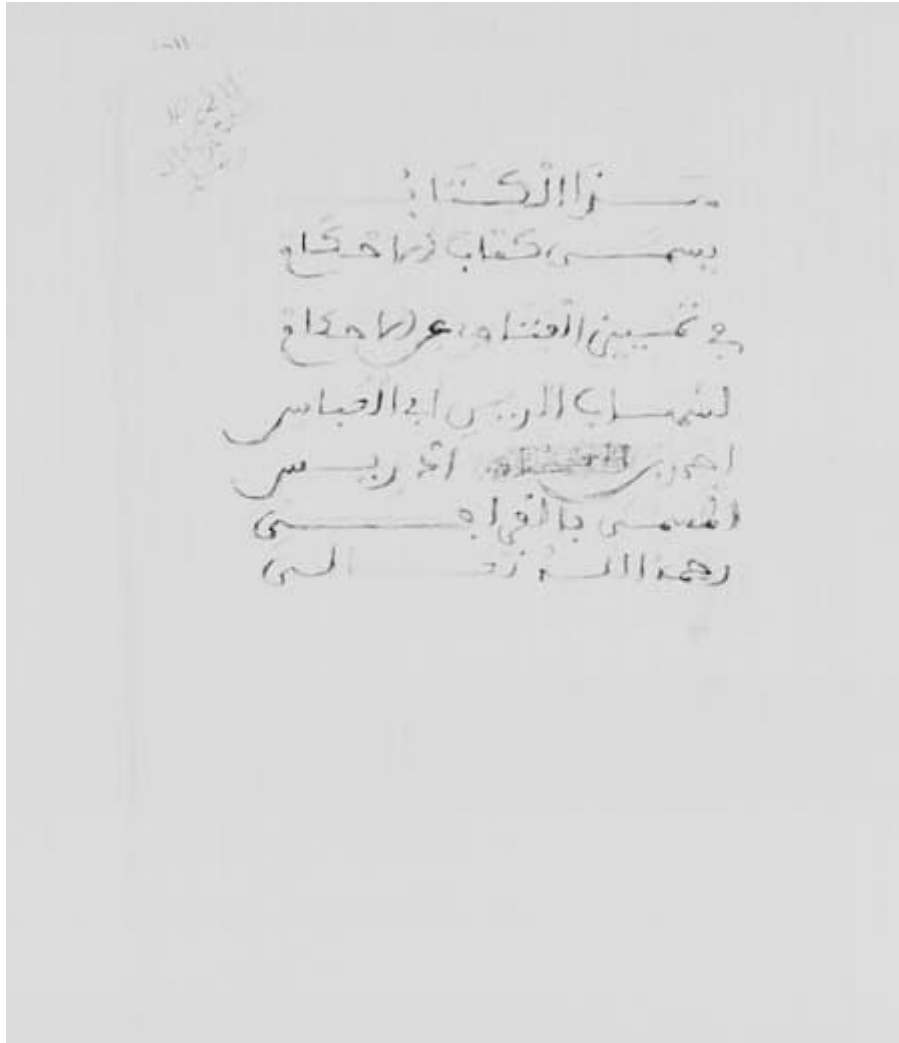 هذا الكتاب
يسمى كتاب الاحكام
في تمييز الفتاوى عن الاحكام
لشهاب الدين ابي العباس
احمد بن ادريس
المسمى بالقرافي
رحمه الله تعالى